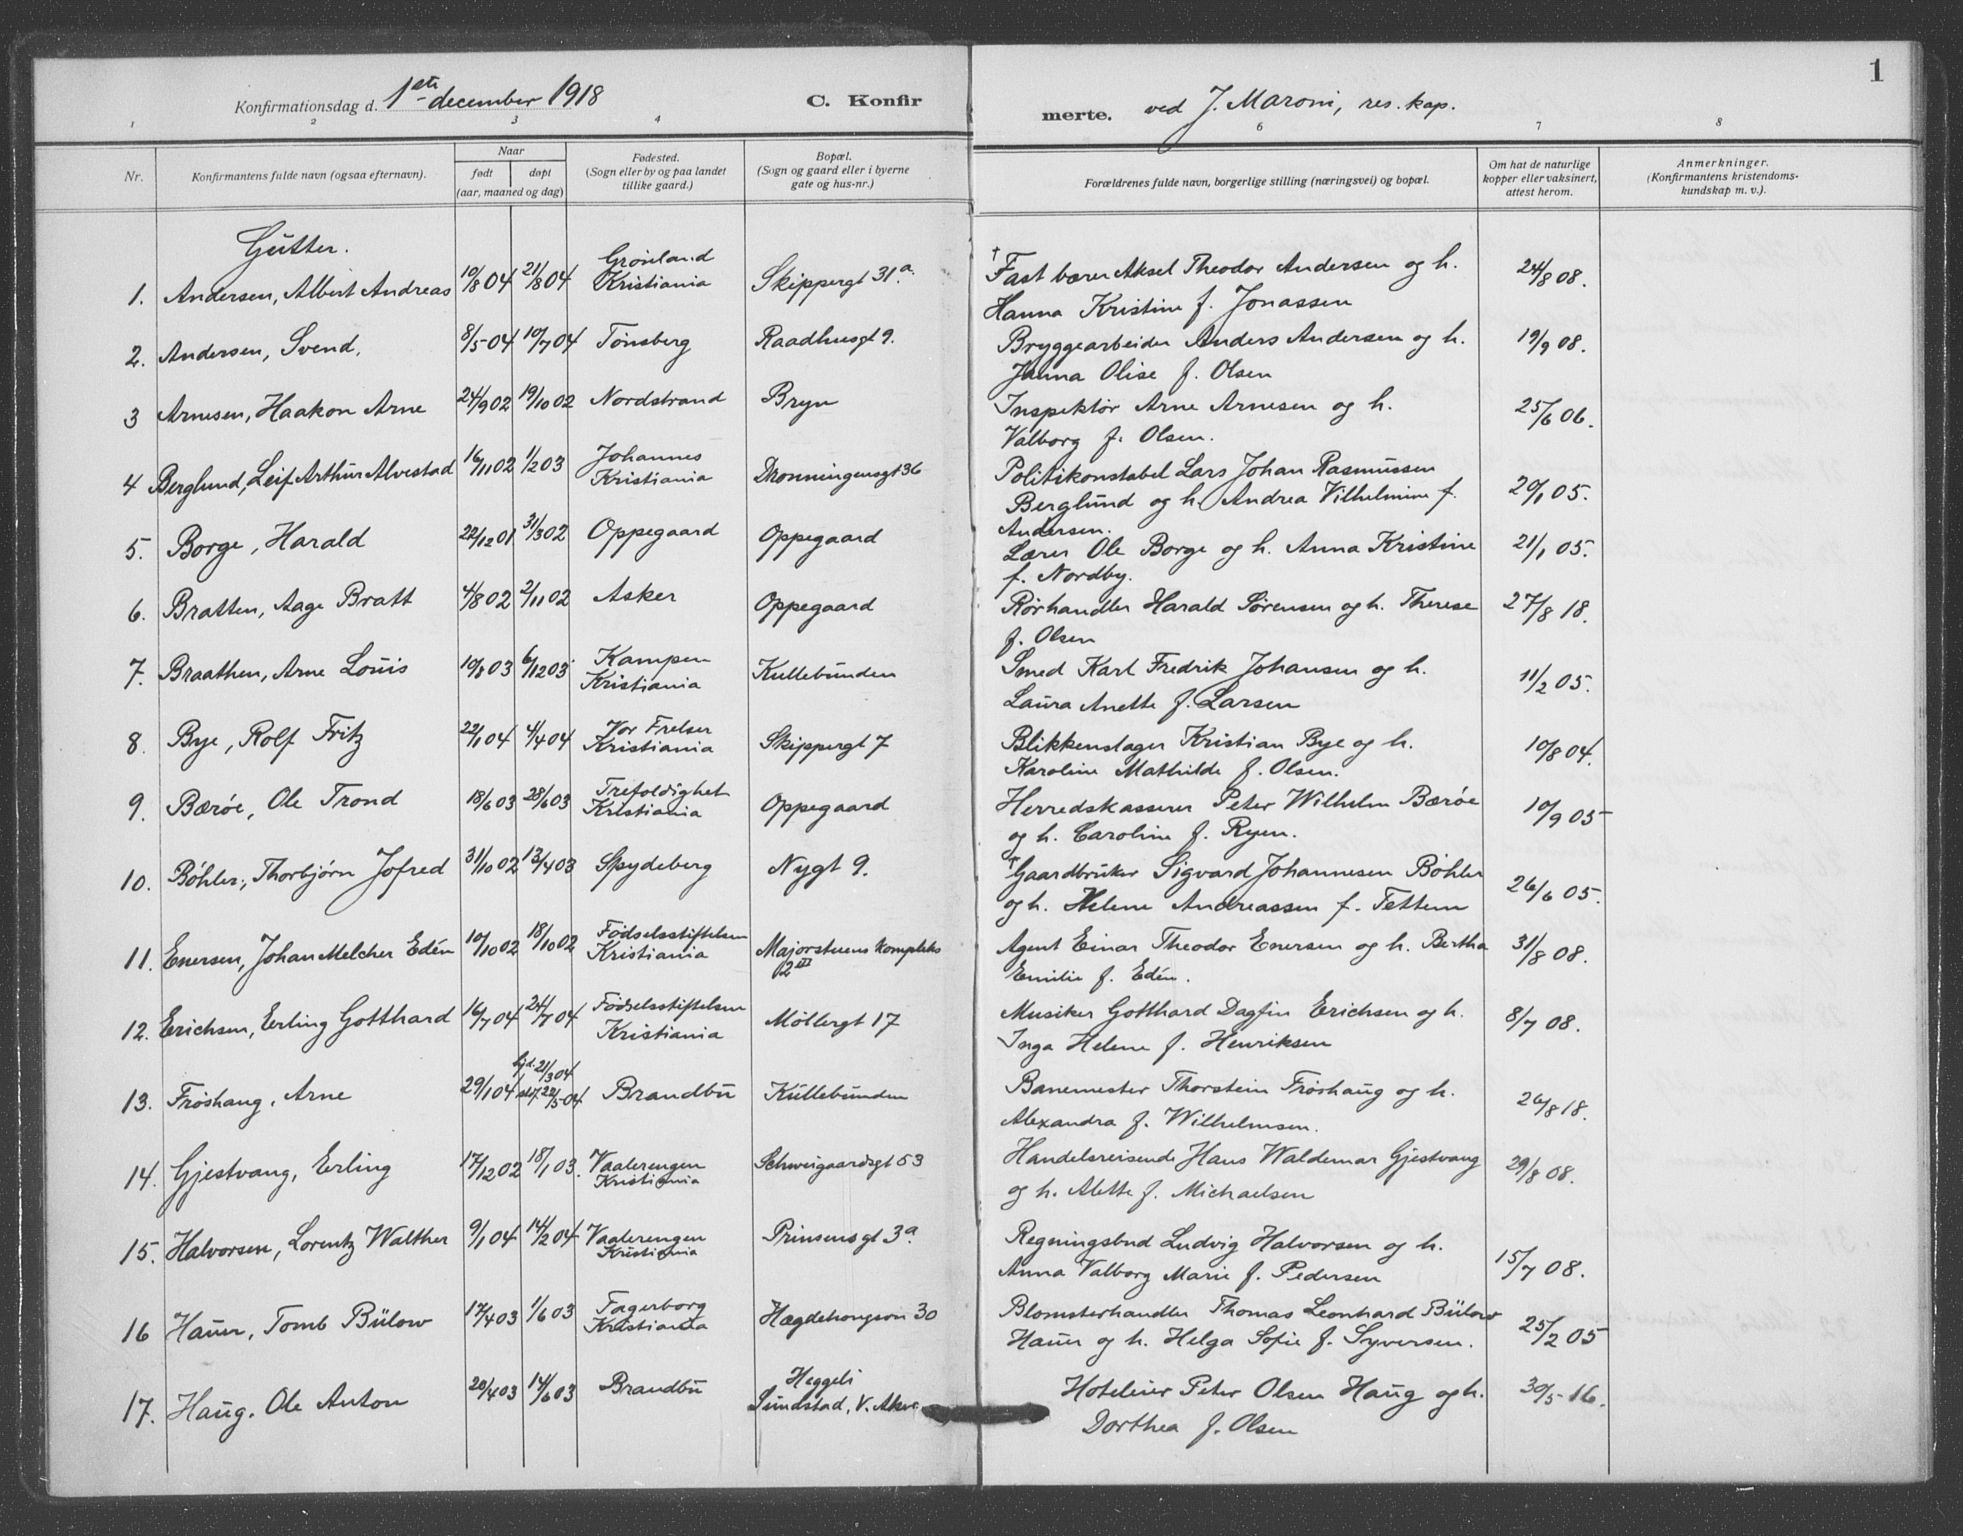 1
Konfirmationsdag d. 1ste december 1918 C. Konfirmerte. ved J. Maroni, res. kap.
1 2 3 4 6 7 8
Nr. Konfirmantens fulde navn (ogsaa efternavn). Naar født døpt (aar, maaned og dag) Fødested. (Sogn eller by og paa landet tillike gaard.) Bopæl. (Sogn og gaard eller i byerne gate og hus-nr.) Forældrenes fulde navn, borgerlige stilling (næringsvei) og bopæl. Om hat de naturlige kopper eller vaksinert, attest herom. Anmerkninger. (Konfirmantens kristendomskundskap m. v.).
Gutter.
1. Andersen, Albert Andreas 10/8 04 21/8 04 Grønland Kristiania Skippergt 31a. † Fast bærer Aksel Theodor Andersen og h. 24/8 08.
Hanna Kristine f. Jonassen
2. Andersen, Svend, 8/5 04 10/7 04 Tønsberg Raadhusgt 9. Bryggearbeider Anders Andersen og h. 19/9 08.
Janna Olise f. Olsen
3 Arnesen, Haakon Arne 24/9 02 19/10 02 Nordstrand Bryn Inspektør Arne Arnesen og h. 25/6 06.
Valborg f. Olsen.
4 Berglund, Leif Arthur Alvestad 16/11 02 1/2 03 Johannes Kristiania Dronningensgt 36 Politikonstabel Lars Johan Rasmussen
Berglund og h. Andrea Vilhelmine f. 20/1 05.
Andersen.
5. Borge, Harald 22/12 01 31/3 02 Oppegaard Oppegaard Lærer Ole Borge og h. Anna Kristine 21/1 05.
f. Nordby.
6. Bratten, Aage Bratt 4/8 02 2/11 02 Asker Oppegaard Rørhandler Harald Sørensen og h. Therese 27/8 18.
f. Olsen
7. Braathen, Arne Louis 10/8 03 6/12 03. Kampen Kristiania Kullebunden Smed Karl Fredrik Johansen og h. 11/2 05.
Laura Anette f. Larsen
8. Bye, Rolf Fritz 22/1 04 4/4 04 Vor Frelser Kristiania Skippergt 7 Blikkenslager Kristian Bye og h. 10/8 04.
Karoline Mathilde f. Olsen.
9. Bærøe, Ole Trond 18/6 03 28/6 03 Trefoldighet Kristiania Oppegaard Herredskasserer Peter Wilhelm Bærøe 10/9 05
og h. Caroline f. Ryen.
10. Bøhler, Thorbjørn Jofred 31/10 02 13/4 03 Spydeberg Nygt 9. † Gaardbruker Sigvard Johannesen Bøhler 26/6 05.
og h. Helene Andreassen f. Tettum
11. Enersen, Johan Melcher Edén 10/10 02 18/10 02 Fødselsstiftelsen Kristiania Majorstuens Kompleks 2III Agent Einar Theodor Enersen og h. Bertha 31/8 08.
Emilie f. Edén.
12. Erichsen, Erling Gotthard 16/7 04 24/7 04 Fødselsstiftelsen Kristiania Møllergt 17 Musiker Gotthard Dagfin Erichsen og h. 8/7 08.
Inga Helene f. Henriksen
13. Frøshaug, Arne 29/1 04 hjd. 21/3 04 stdf. 22/5 04 Brandbu Kullebunden Banemester Thorstein Frøshaug og h. 26/8 18.
Alexandra f. Wilhelmsen.
14. Gjestvang, Erling 17/12 02 18/1 03. Vaalerengen Kristiania Schweigaardsgt 53 Handelsreisende Hans Waldemar Gjestvang 29/8 08.
og h. Alette f. Michaelsen
15. Halvorsen, Lorentz Walther 9/1 04 14/2 04 Vaalerengen Kristiania Prinsensgt 3a Regningsbud Ludvig Halvorsen og h. 15/7 08.
Anna Valborg Marie f. Pedersen
16 Hauer, Tomb Bülow 17/4 03 1/6 03 Fagerborg Kristiania Hægdehougsvn 30 Blomsterhandler Thomas Leonhard Bülow 25/2 05
Hauer og h. Helga Sofie f. Syversen.
17. Haug, Ole Anton 20/4 03 14/6 03 Brandbu Heggeli Sundstad, V. Aker. Hoteleier Peter Olsen Haug og h. 30/5 16.
Dorthea f. Olsen